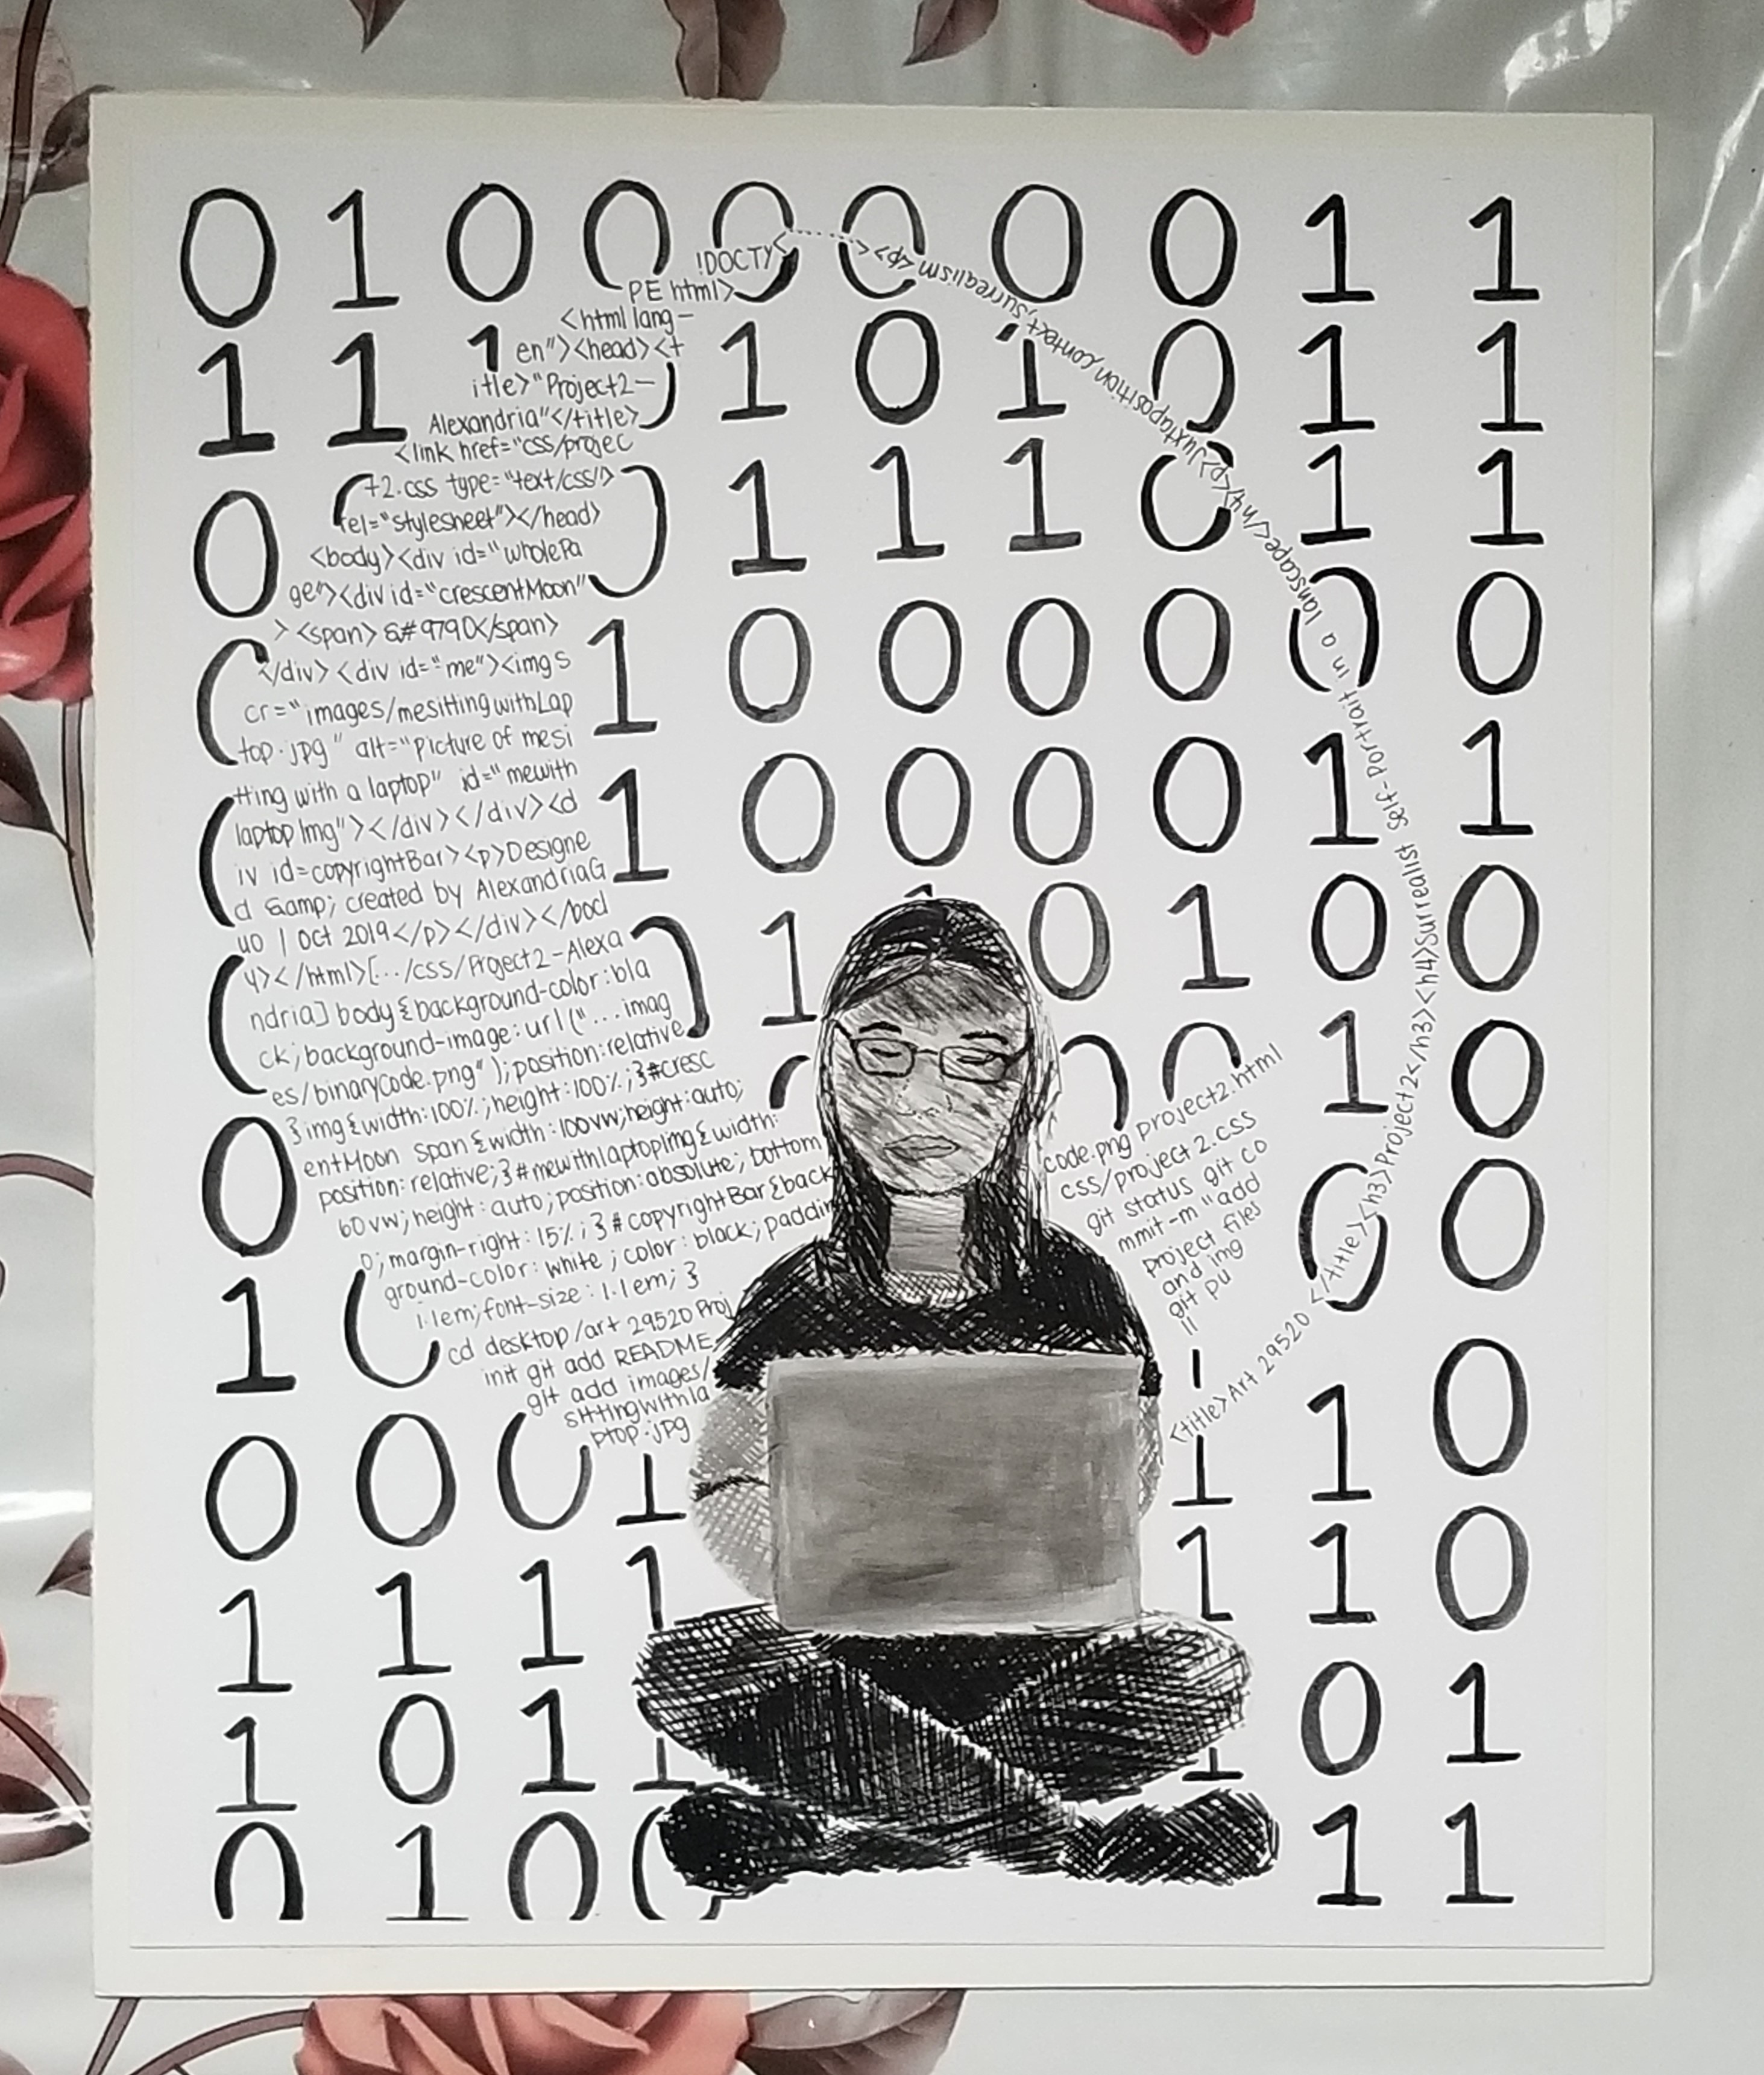 0 1 0 0 0 0 0 0 1 1
1 1 1 0 1 0 1 0 1 1
0 0 0 1 1 1 0 1 1
0 1 0 0 0 0 0 0
0 1 0 0 0 0 1 1
0 0 1 0 1 0 0
0 0 0 0 1 0
1 0 0 0
0 0 0 1 1 1 0
1 1 1 1 1 1 0
1 0 1 1 1 0 1
0 1 0 0 1 1
<!DOCTY
PE html>
<html lang-
en"><head><t
itle>"Project2-
Alexandria"</title>
<link href="css/projec
t2.css type="text/css/>
rel="stylesheet"></head>
<body><div id="wholePa
ge"><div id="crescentMoon"
><span>&#9790</span>
</div><div id="me"><img s
cr="images/mesittingwithLap
top.jpg" alt="Picture of mesi
tting with a laptop" id="mewith
laptopImg"></div></div><d
iv id=copyrightBar><p>Designe
d &amp; created by AlexandriaG
uo | Oct 2019</p></div></bod
y></html>[.../css/Project2-Alexa
ndria] body{background-color:bla
ck;background-image:url("...imag
es/binaryCode.png");position:relative
}img{width:100%;height:100%;}#cresc
entMoon span{width:100vw;height:auto;
position:relative;}#mewithlaptopimg{width:
60vw;height:auto;position:absolute;bottom
0;margin-right:15%;}#copyrightBar{back
ground-color:white;color:black;paddin
1.1em;font-size:1.1em;}
cd desktop/art 29520 Proj
init git add README
git add images/
sittingwithla
ptop.jpg
code.png project2.html
css/project2.css
git status git co
mmit -m "add
project files
and img
git pu
ll
<title>Art 29520 </title><h3>Project2</h3><h4>Surrealist Self-Portrait in a lanscape</h4><p>Juxtaposition,context,surrealism<p>